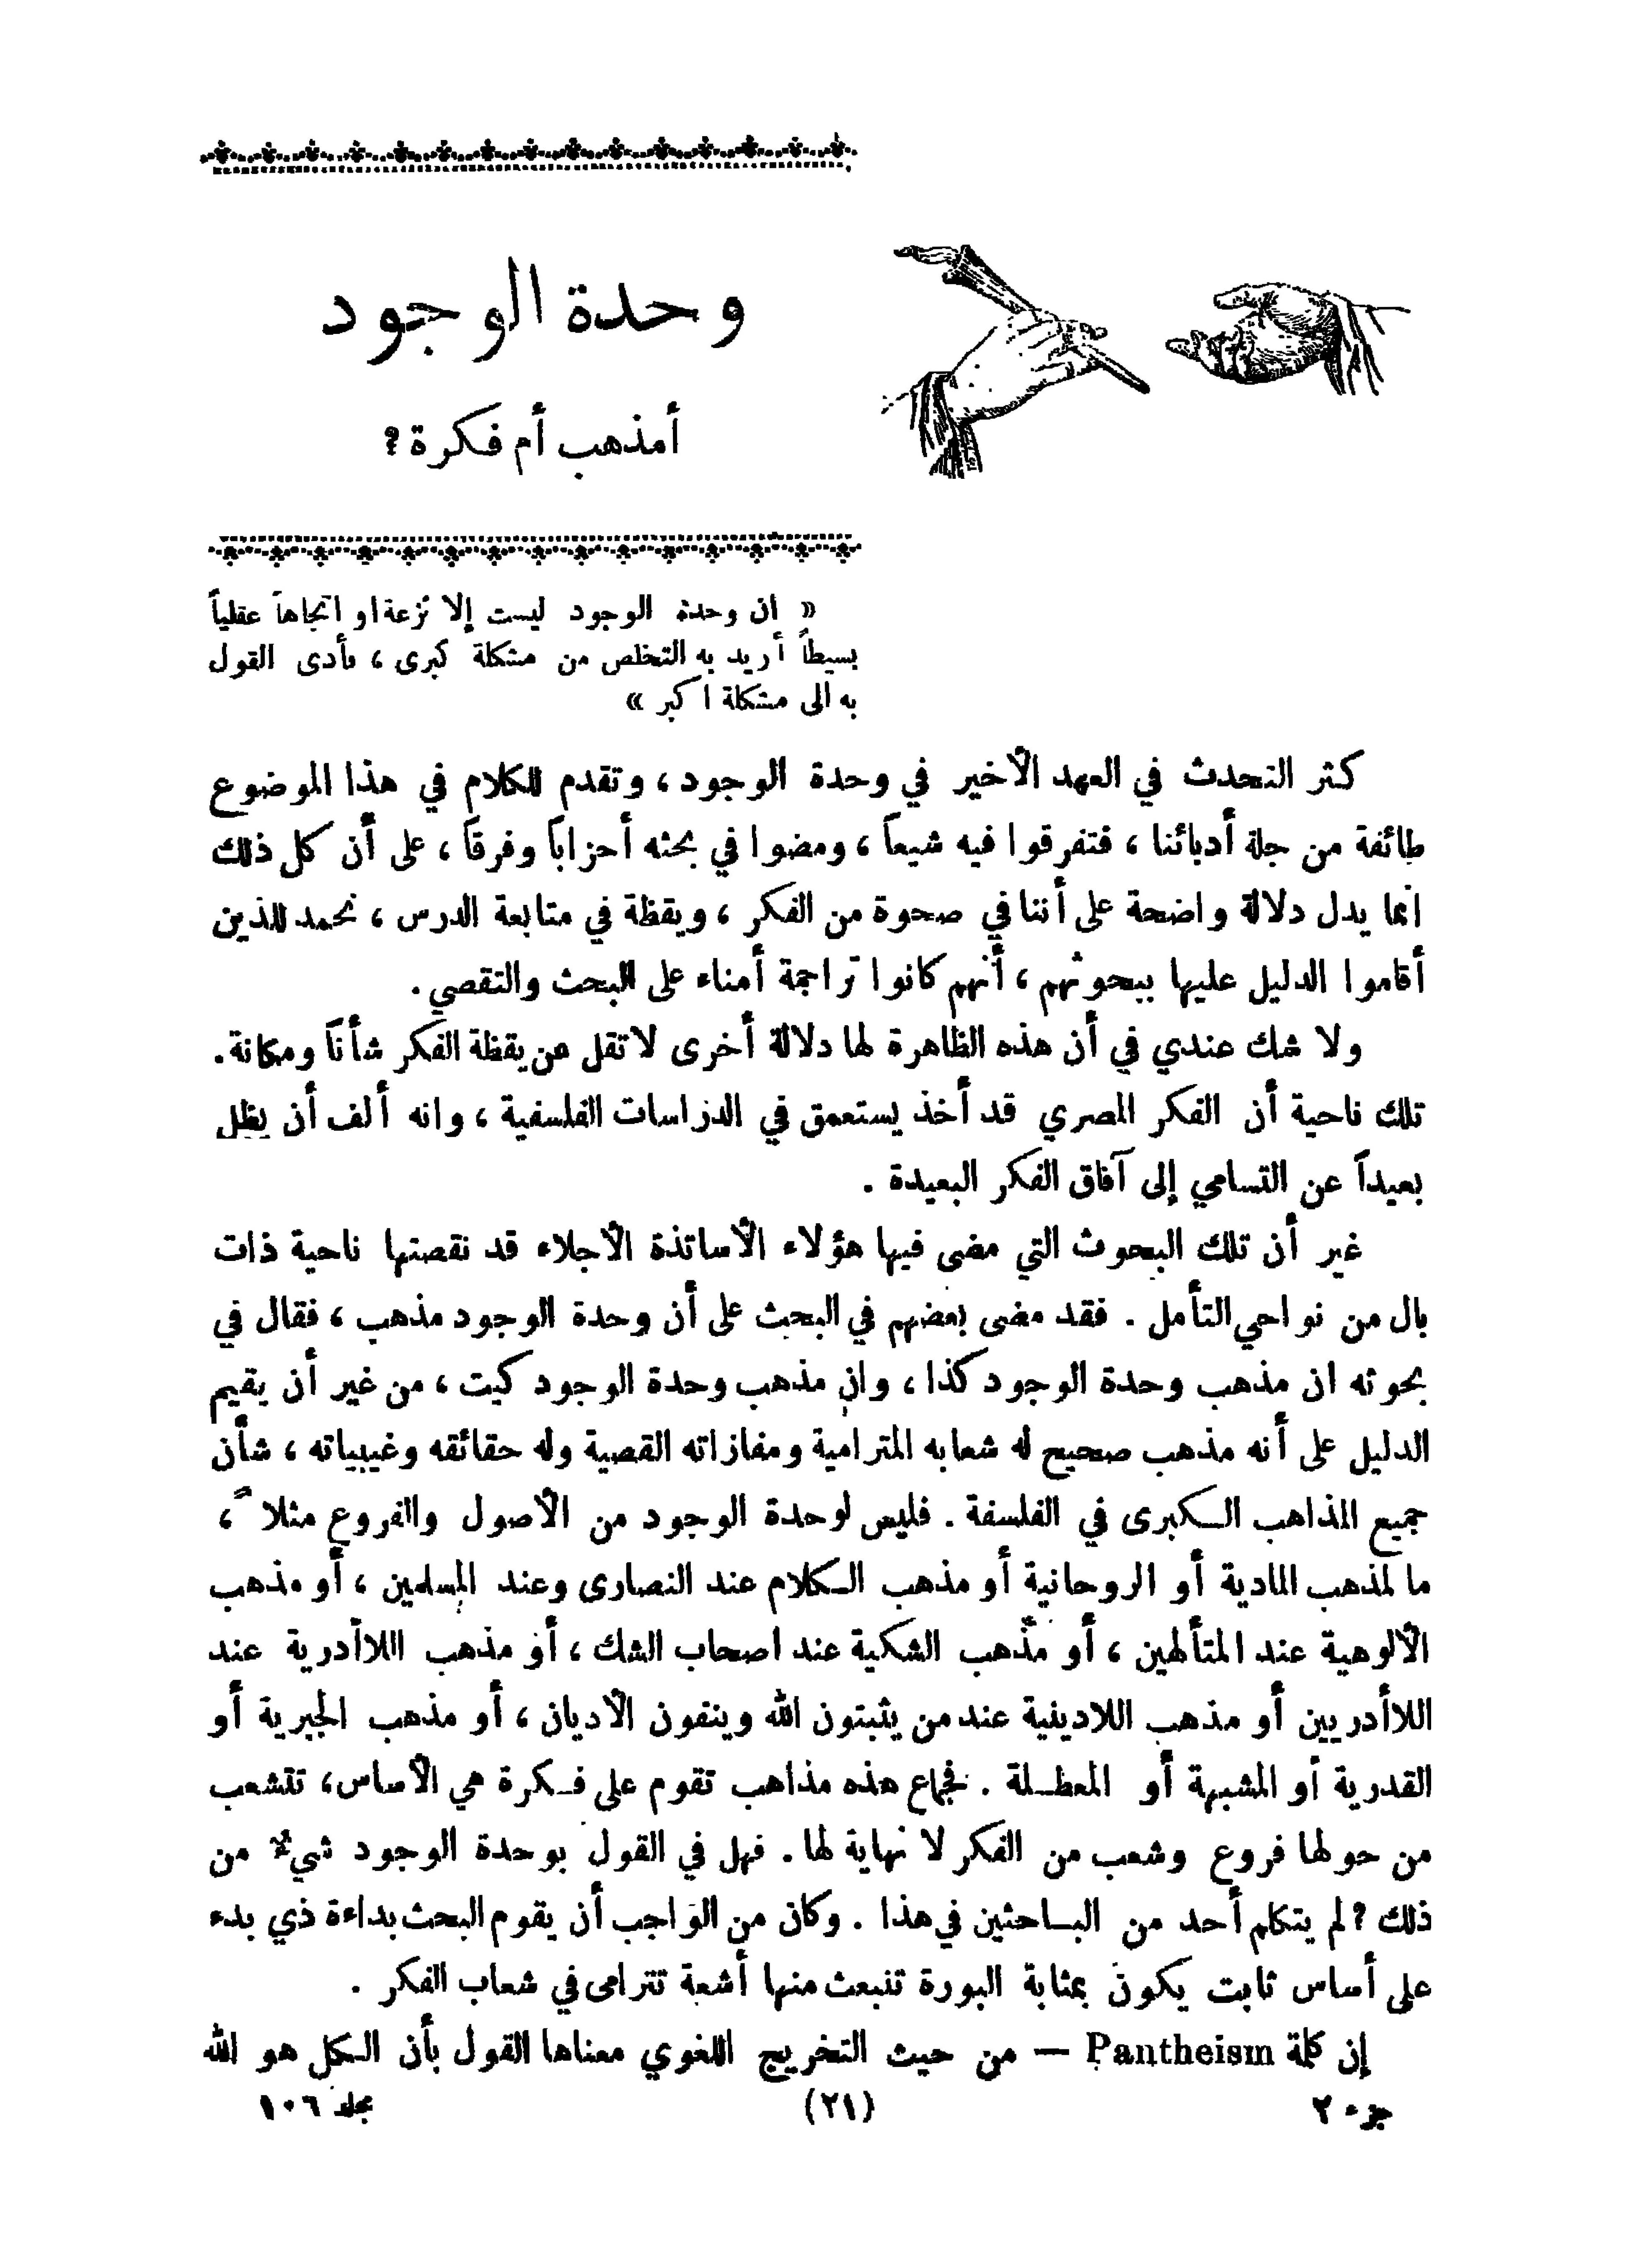 وحدة الوجود
أمذهب أم فكرة؟
« ان وحدة الوجود ليست إلا نزعة او اتجاهاً عقلياً
بسيطاً أريد به التخلص من مشكلة كبرى ، فأدى القول
به الى مشكلة اكبر »
كثر التحدث في العهد الأخير في وحدة الوجود ، وتقدم للكلام في هذا الموضوع
طائفة من جلة أدبائنا ، فتفرقوا فيه شيعاً ، ومضوا في بحثه أحزاباً وفرقاً ، على أن كل ذلك
انما يدل دلالة واضحة على أننا في صحوة من الفكر ، ويقظة في متابعة الدرس ، نحمد للذين
أقاموا الدليل عليها ببحوثهم ، أنهم كانوا تراجمة أمناء على البحث والتقصي .
ولا شك عندي في أن هذه الظاهرة لها دلالة أخرى لا تقل عن يقظة الفكر شأناً ومكانة .
تلك ناحية أن الفكر المصري قد أخذ يستعمق في الدراسات الفلسفية ، وانه ألف أن يظل
بعيداً عن التسامي إلى آفاق الفكر البعيدة .
غير أن تلك البحوث التي مضى فيها هؤلاء الأساتذة الأجلاء قد نقصتها ناحية ذات
بال من نواحي التأمل . فقد مضى بعضهم في البحث على أن وحدة الوجود مذهب ، فقال في
بحوثه ان مذهب وحدة الوجود كذا ، وان مذهب وحدة الوجود كيت ، من غير أن يقيم
الدليل على أنه مذهب صحيح له شعابه المترامية ومفازاته القصية وله حقائقه وغيبياته ، شأن
جميع المذاهب الكبرى في الفلسفة . فليس لوحدة الوجود من الأصول والفروع مثلاً ،
ما لمذهب المادية أو الروحانية أو مذهب الكلام عند النصارى وعند المسلمين ، أو مذهب
الألوهية عند المتألهين ، أو مذهب الشكية عند اصحاب الشك ، أو مذهب اللاأدرية عند
اللاأدريين أو مذهب اللادينية عند من يثبتون الله وينفون الأديان ، أو مذهب الجبرية أو
القدرية أو المشبهة أو المعطلة . فجماع هذه مذاهب تقوم على فكرة هي الأساس ، تتشعب
من حولها فروع وشعب من الفكر لا نهاية لها . فهل في القول بوحدة الوجود شيء من
ذلك ؟ لم يتكلم أحد من الباحثين في هذا . وكان من الواجب أن يقوم البحث بداءة ذي بدء
على أساس ثابت يكون بمثابة البورة تنبعث منها أشعة تترامى في شعاب الفكر .
إن كلمة Pantheism — من حيث التخريج اللغوي معناها القول بأن الكل هو الله
جزء ٢ (٢١) مجلد ١٠٦